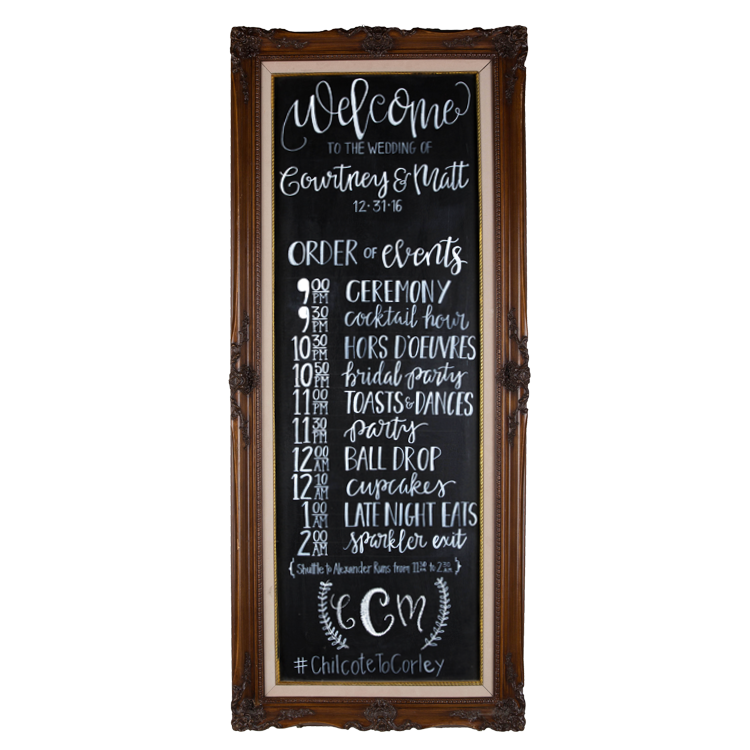 Welcome
TO THE WEDDING OF
Courtney & Matt
12·31·16
ORDER OF events
9 00 PM CEREMONY
9 30 PM cocktail hour
10 30 PM HORS D'OEUVRES
10 50 PM bridal party
11 00 PM TOASTS & DANCES
11 30 PM party
12 00 AM BALL DROP
12 10 AM cupcakes
1 00 AM LATE NIGHT EATS
2 00 AM sparkler exit
{Shuttle to Alexander Runs from to 2 30 AM}
C C M
#ChilcoteToCorley